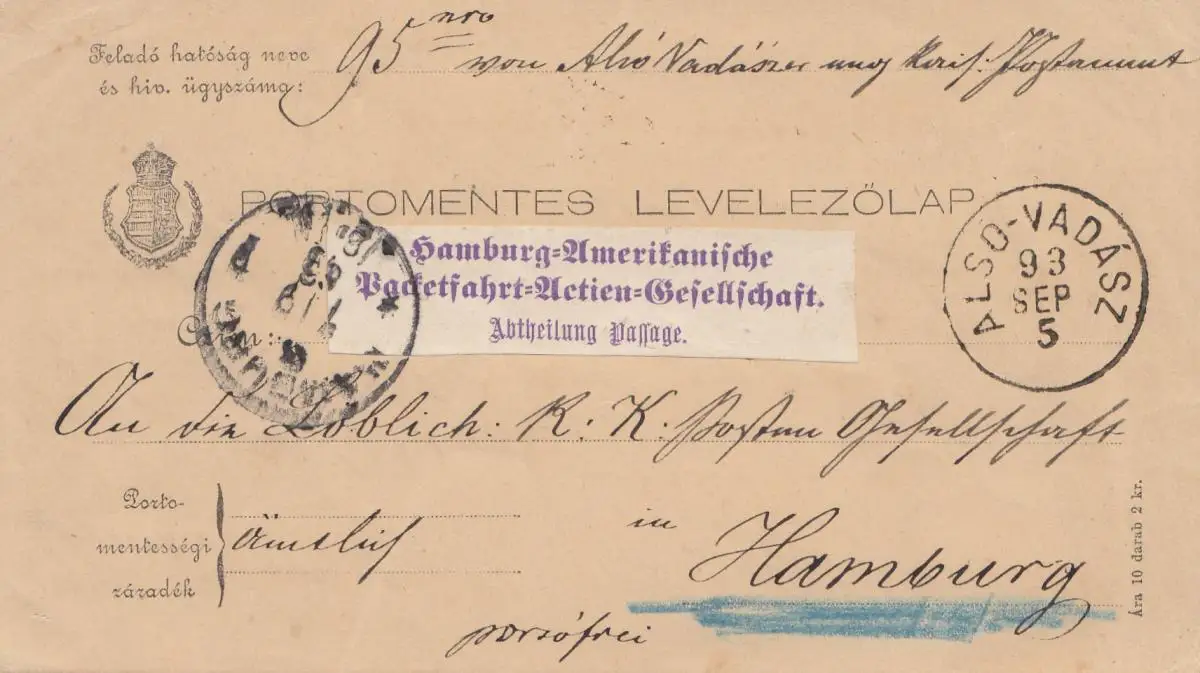 Feladó hatóság neve
és hiv. ügyszáma:
95 nro von Alsó Vadászer ung Kais: Postammt
PORTOMENTES LEVELEZŐLAP
Hamburg=Amerikanische
Packetfahrt=Actien=Gesellschaft.
Abtheilung Passage.
ALSO-VADÁSZ
93
SEP
5
HAMBURG
Czim:
An die Löblich: K. K. Posten Gesellschaft
Porto-
mentességi
záradék
ämtlich
in Hamburg
portófrei
Ára 10 darab 2 kr.